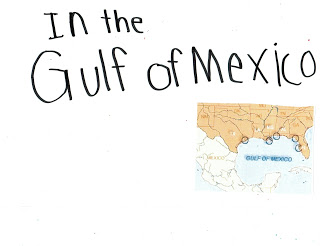 In the
Gulf of Mexico
MEXICO
GULF OF MEXICO